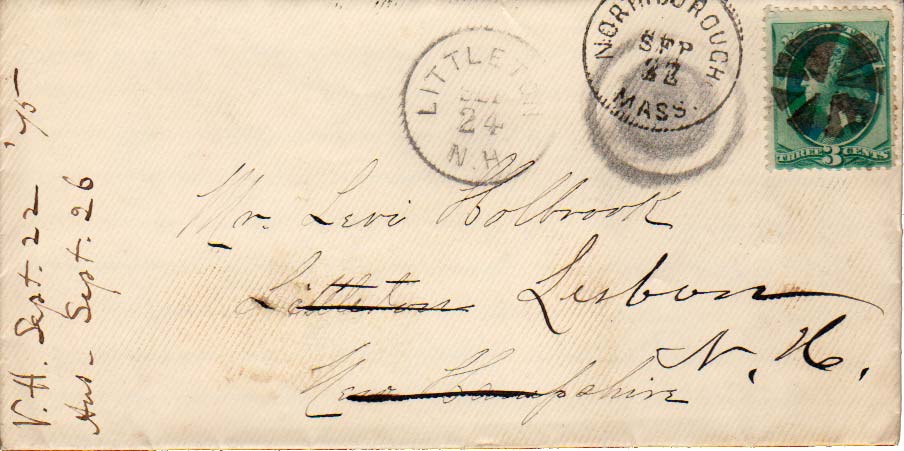 NORTHBOROUGH
SEP
22
MASS.
LITTLETON
SEP
24
N.H.
THREE 3 CENTS
Mr. Levi Holbrook
Littleton Lisbon
New Hampshire N. H.
V.H. Sept. 22 '75
Ans- Sept. 26